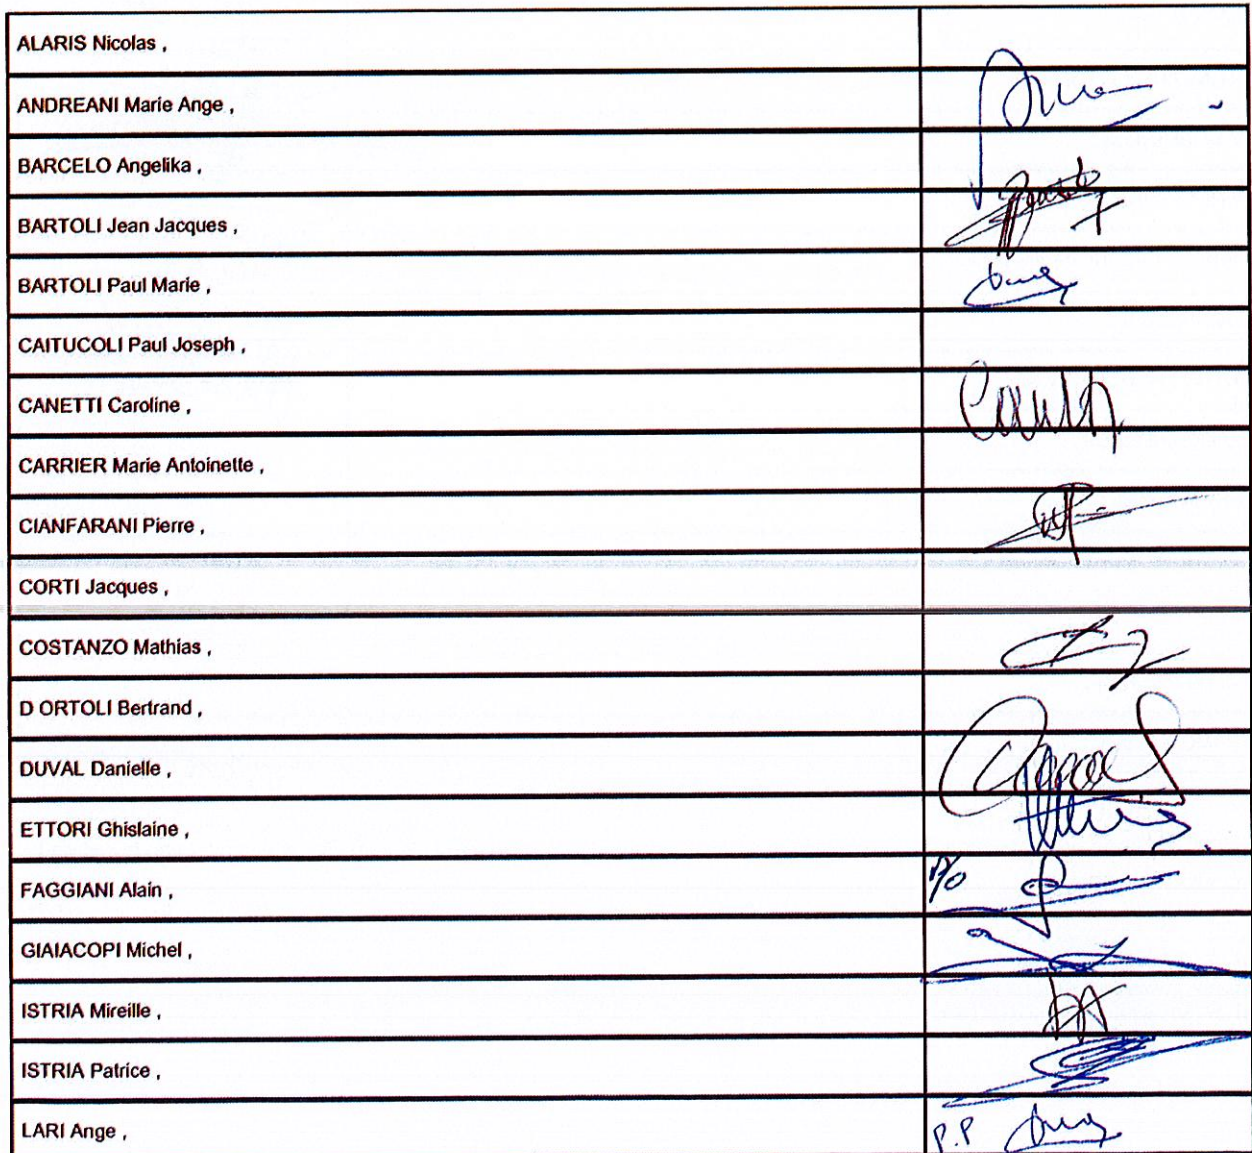 ALARIS Nicolas ,
ANDREANI Marie Ange ,
BARCELO Angelika ,
BARTOLI Jean Jacques ,
BARTOLI Paul Marie ,
CAITUCOLI Paul Joseph ,
CANETTI Caroline ,
CARRIER Marie Antoinette ,
CIANFARANI Pierre ,
CORTI Jacques ,
COSTANZO Mathias ,
D ORTOLI Bertrand ,
DUVAL Danielle ,
ETTORI Ghislaine ,
FAGGIANI Alain , P/o
GIAIACOPI Michel ,
ISTRIA Mireille ,
ISTRIA Patrice ,
LARI Ange , P.P